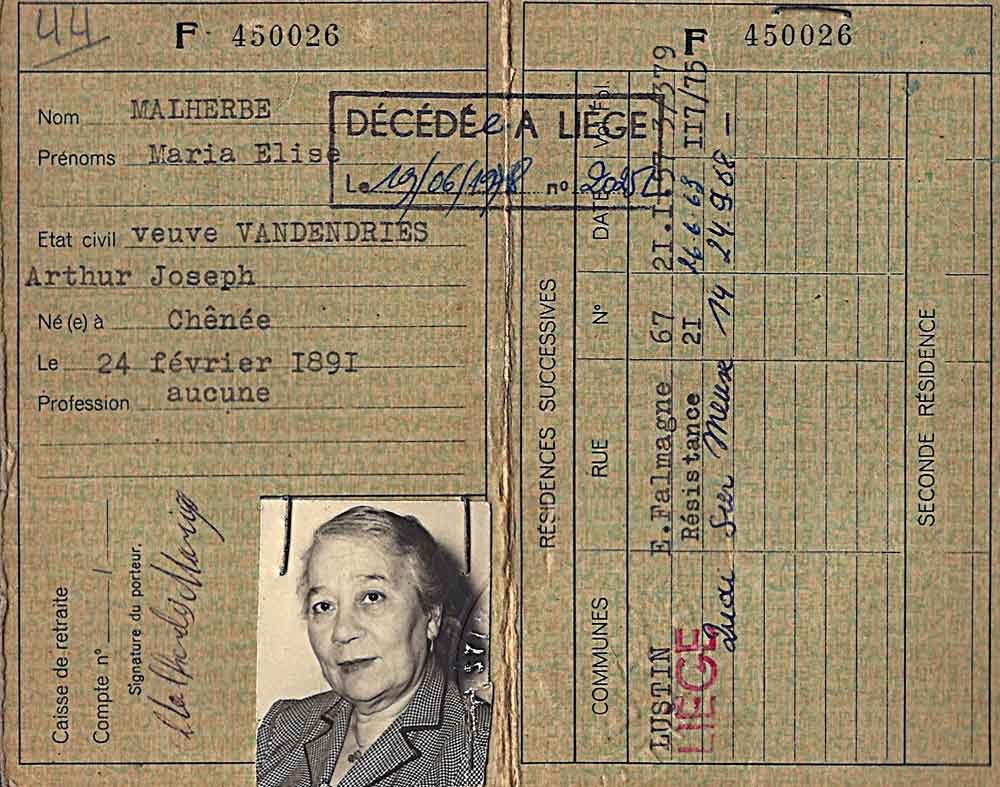 44
F 450026
Nom MALHERBE
Prénoms Maria Elise
DÉCÉDÉe A LIÉGE
Le 19/06/1978 nº
Etat civil veuve VANDENDRIES
Arthur Joseph
Né (e) à Chênée
Le 24 février I89I
Profession aucune
Caisse de retraite
Compte nº
Signature du porteur.
Malherbe Maria
F 450026
RÉSIDENCES SUCCESSIVES
COMMUNES RUE Nº DATE
LUSTIN E.Falmagne 67 2I.I.57 3/379
LIEGE Résistance 2I 26.6.63 II7/75
Quai Sur Meuse 14 24.9.68 —
SECONDE RÉSIDENCE